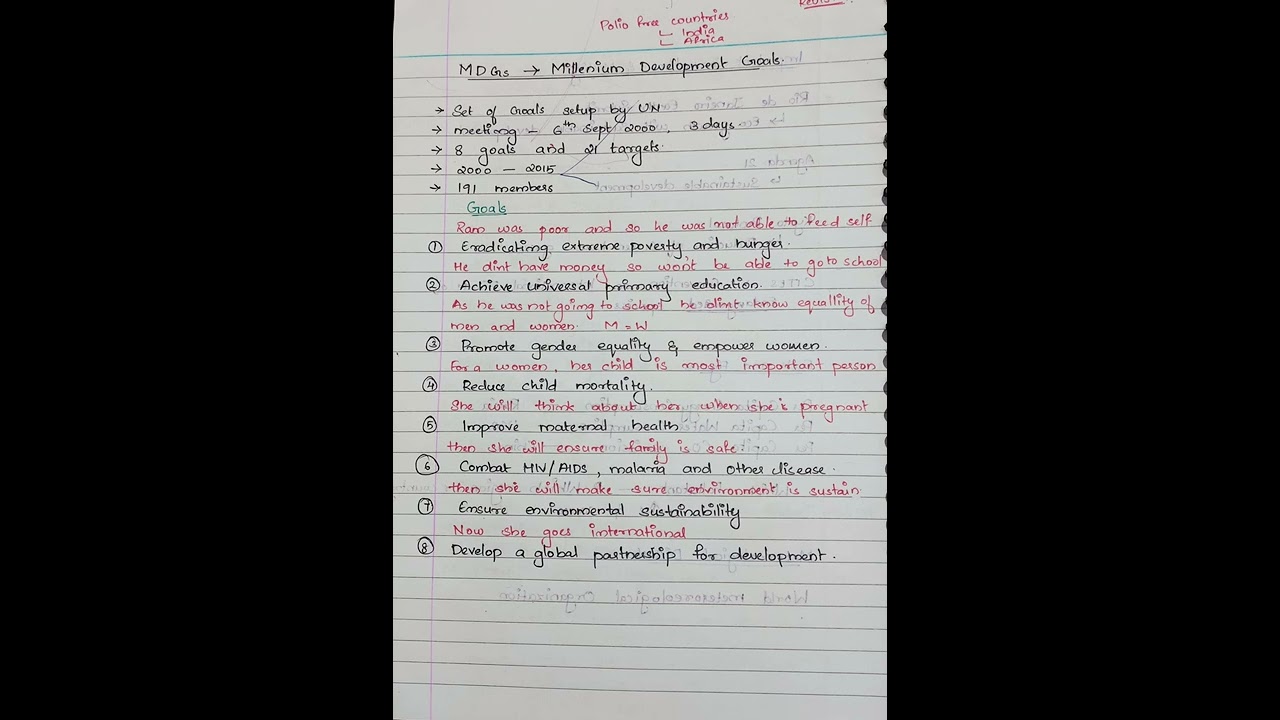 Polio free countries
India
Africa
MDGs → Millenium Development Goals.
→ Set of Goals setup by UN
→ meeting - 6th Sept 2000, 3 days
→ 8 goals and 21 targets.
→ 2000 - 2015
→ 191 members
Goals
Ram was poor and so he was not able to feed self
① Eradicating extreme poverty and hunger.
He dint have money so won't be able to go to school
② Achieve universal primary education.
As he was not going to school he dint know equallity of
men and women. M = W
③ Promote gender equality & empower women.
For a women, her child is most important person
④ Reduce child mortality.
She will think about her when she is pregnant
⑤ Improve maternal health
then she will ensure family is safe
⑥ Combat HIV/AIDS, malaria and other disease.
then she will make sure environment is sustain
⑦ Ensure environmental sustainability
Now she goes international
⑧ Develop a global partnership for development.